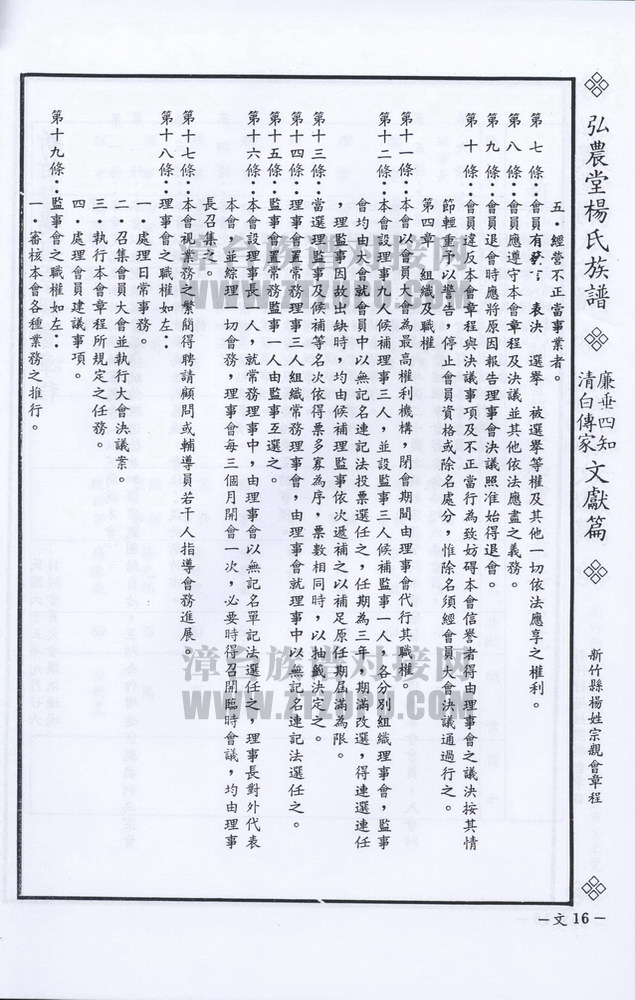 弘農堂楊氏族譜
廉垂四知
清白傳家
文獻篇
新竹縣楊姓宗親會章程
五．經營不正當事業者。
第七條：會員有 表決 選舉 被選舉等權及其他一切依法應享之權利。
第八條：會員應遵守本會章程及決議並其他依法應盡之義務。
第九條：會員退會時應將原因報告理事會決議照准始得退會。
第十條：會員違反本會章程與決議事項及不正當行為致妨碍本會信譽者得由理事會之議決按其情
節輕重予以警告，停止會員資格或除名處分，惟除名須經會員大會決議通過行之。
第四章 組織及職權
第十一條：本會以會員大會為最高權利機構，閉會期間由理事會代行其職權。
第十二條：本會設理事九人候補理事三人，並設監事三人候補監事一人，各分別組織理事會，監事
會均由大會就會員中以無記名連記法投票選任之，任期為三年，期滿改選，得連選連任
，理監事因故出缺時，均由候補理監事依次遞補之以補足原任期屆滿為限。
第十三條：當選理監事及候補等名次依得票多寡為序，票數相同時，以抽籤決定之。
第十四條：理事會置常務理事三人組織常務理事會，由理事會就理事中以無記名連記法選任之。
第十五條：監事會置常務監事一人由監事互選之。
第十六條：本會設理事長一人，就常務理事中，由理事會以無記名單記法選任之，理事長對外代表
本會，並綜理一切會務，理事會每三個月開會一次，必要時得召開臨時會議，均由理事
長召集之。
第十七條：本會視業務之繁簡得聘請顧問或輔導員若干人指導會務進展。
第十八條：理事會之職權如左：
一．處理日常事務。
二．召集會員大會並執行大會決議案。
三．執行本會章程所規定之任務。
四．處理會員建議事項。
第十九條：監事會之職權如左：
一．審核本會各種業務之推行。
－文16－
漳台族谱对接网
www.ZTZUPU.COM
漳台族谱对接网
www.ZTZUPU.COM